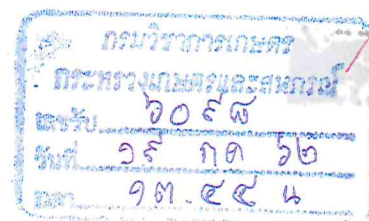 กรมวิชาการเกษตร
กระทรวงเกษตรและสหกรณ์
เลขรับ ๖๐๙๘
วันที่ ๑๙ กค ๖๒
เวลา ๑๓.๔๔ น